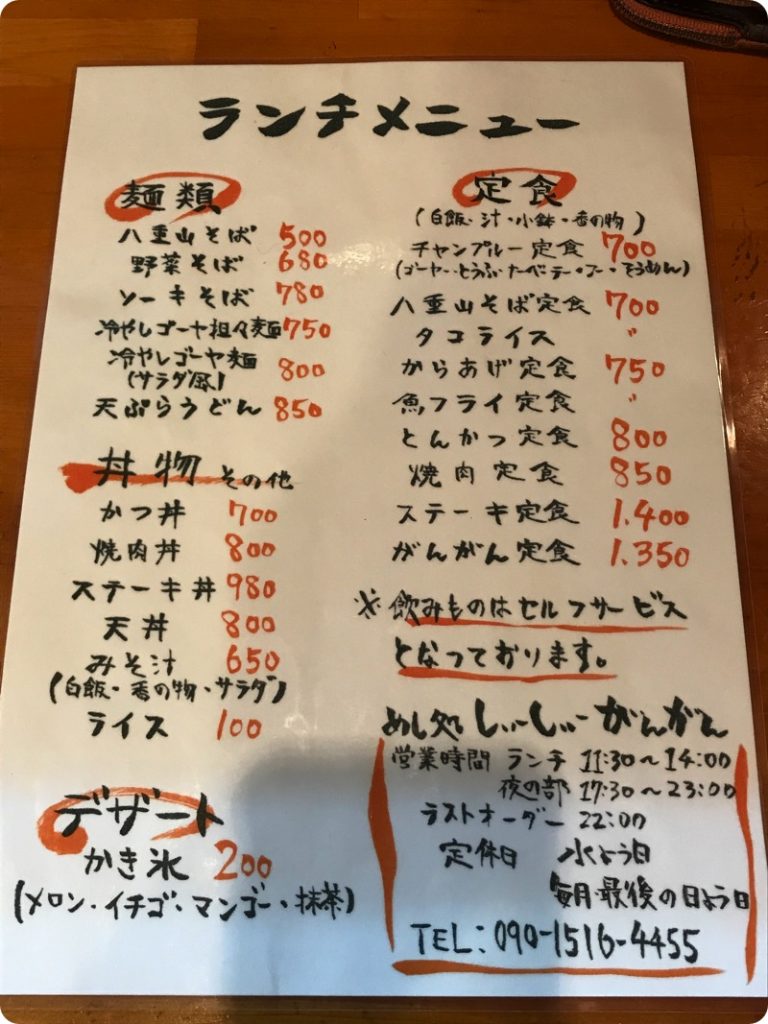 ランチメニュー
麺類
八重山そば 500
野菜そば 680
ソーキそば 780
冷やしゴーヤ担々麺 750
冷やしゴーヤ麺 800
(サラダ風)
天ぷらうどん 850
丼物 その他
かつ丼 700
焼肉丼 800
ステーキ丼 980
天丼 800
みそ汁 650
(白飯・香の物・サラダ)
ライス 100
デザート
かき氷 200
(メロン・イチゴ・マンゴー・抹茶)
定食
(白飯・汁・小鉢・香の物)
チャンプルー定食 700
(ゴーヤー・とうふ・たーべーテー・フー・そうめん)
八重山そば定食 700
タコライス 〃
からあげ定食 750
魚フライ定食 〃
とんかつ定食 800
焼肉定食 850
ステーキ定食 1.400
がんがん定食 1.350
※飲みものはセルフサービス
となっております。
めし処 しぃーしぃー がんがん
営業時間 ランチ 11:30～14:00
夜の部 17:30～23:00
ラストオーダー 22:00
定休日 水よう日
毎月最後の日よう日
TEL:090-1516-4455